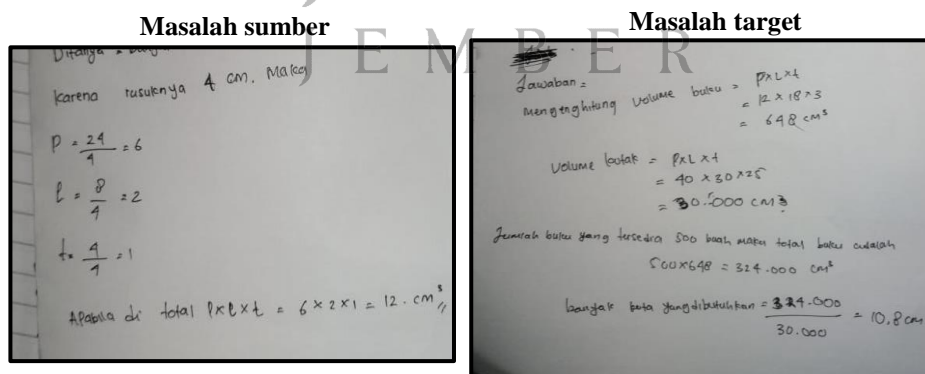 JEMBER
Masalah sumber
Ditanya =
Karena rusuknya 4 cm. Maka
P = 24/4 = 6
l = 8/4 = 2
t = 4/4 = 1
APabila di total PxLxt = 6 x 2 x 1 = 12. cm³
Masalah target
Jawaban =
Mengenghitung volume buku = PxLxt
= 12 x 18 x 3
= 648 cm³
Volume kotak = PxLxt
= 40 x 30 x 25
= 30.000 cm³
Jumlah buku yang tersedia 500 buah maka total buku adalah
500x648 = 324.000 cm³
banyak yang dibutuhkan = 324.000/30.000 = 10,8 cm